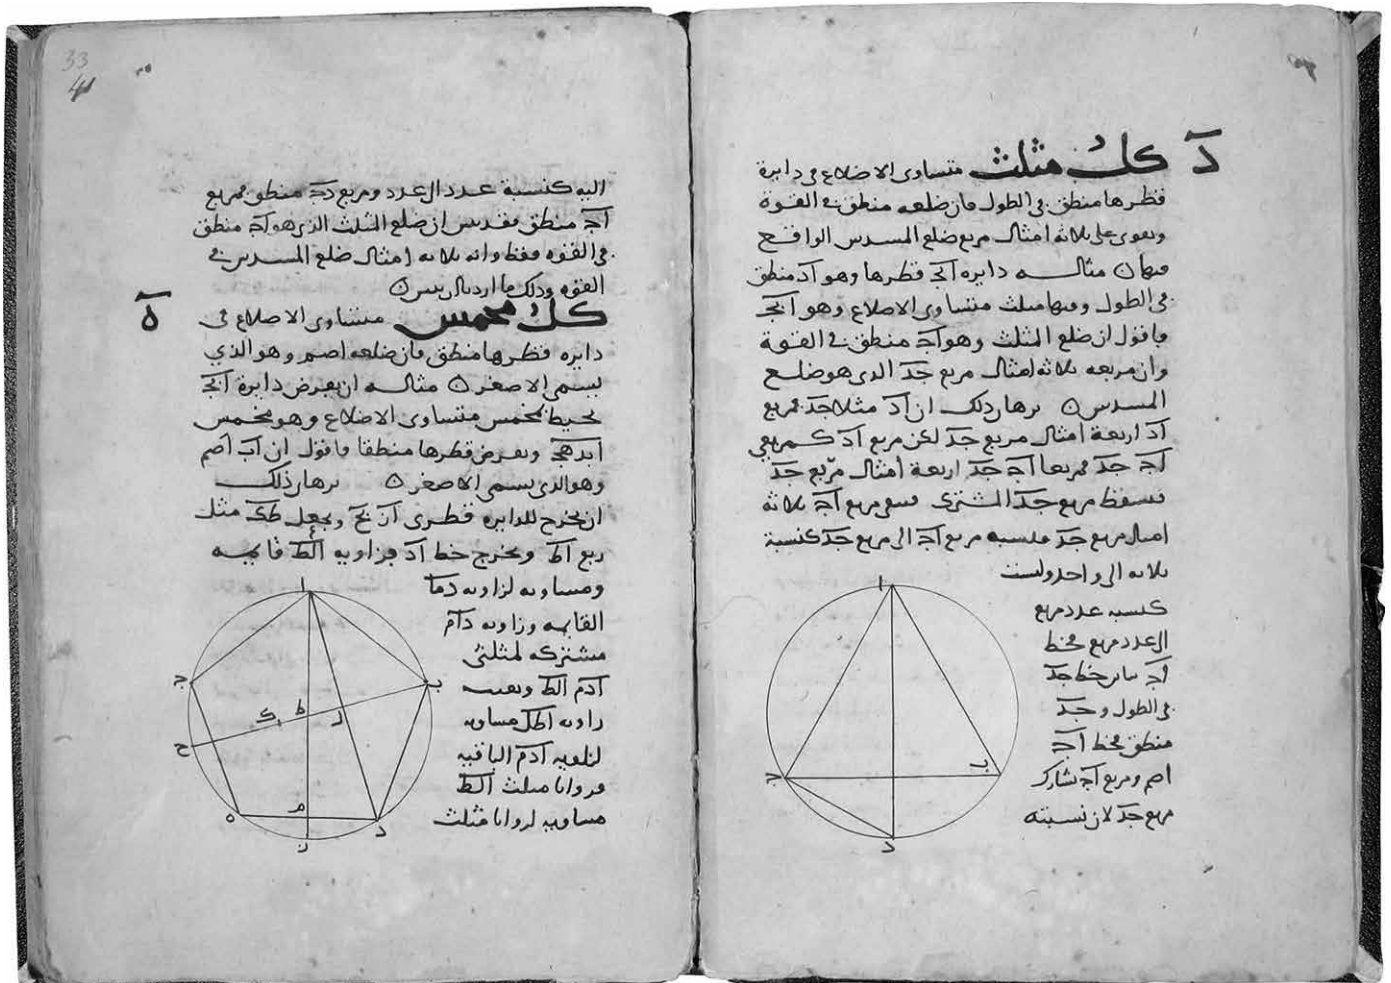 د
كل مثلث متساوى الاضلاع فى دايرة
قطرها منطق فى الطول فان ضلعه منطق فى القوة
ويقوى على ثلاثه امثال مربع ضلع المسدس الواقع
فيها ن مثاله دايره ابج قطرها وهو اد منطق
فى الطول وفيها مثلث متساوى الاضلاع وهو ابج
فاقول ان ضلع المثلث وهو اج منطق فى القوة
وان مربعه ثلاثه امثال مربع جد الذى هو ضلع
المسدس ن برهان ذلك ان اد مثلا جد فمربع
اد اربعة امثال مربع جد لكن مربع اد كمربعي
اج جد فمربعا اج جد اربعة امثال مربع جد
فنسقط مربع جد المشترك فيبقى مربع اج ثلاثه
امثال مربع جد فنسبه مربع اج الى مربع جد كنسبة
ثلاثه الى واحد وليست
كنسبه عدد مربع
الى عدد مربع فخط
اج يباين خط جد
فى الطول وجد
منطق فخط اج
اصم ومربع اج يشارك
مربع جد لان نسبته
ا
ج
ب
د
33
41
اليه كنسبة عدد الى عدد ومربع دج منطق فمربع
اج منطق فقد تبين ان ضلع المثلث الذى هو اج منطق
فى القوه فقط وانه ثلاثه امثال ضلع المسدس فى
القوه وذلك ما اردنا ان نبين ن
ه
كل مخمس متساوى الاضلاع فى
دايره قطرها منطق فان ضلعه اصم وهو الذي
يسمى الاصغر ن مثاله ان يفرض دايرة ابج
يحيط بمخمس متساوى الاضلاع وهو مخمس
ابدهج ونفرض قطرها منطقا فاقول ان اب اصم
وهو الذى يسمى الاصغر ن برهان ذلك
ان نخرج للدايره قطرى ان بح ونجعل طك مثل
ربع اط ونخرج خط اد فزاويه الط قايمه
ومساويه لزاويه دما
القايمه وزاويه دام
مشتركه لمثلثى
ادم الط وتبقى
زاويه اطل مساويه
لزاويه ادم الباقيه
فزوايا مثلث الط
مساويه لزوايا مثلث
ا
ج
ب
ط
ل
ك
ح
م
ه
د
ن